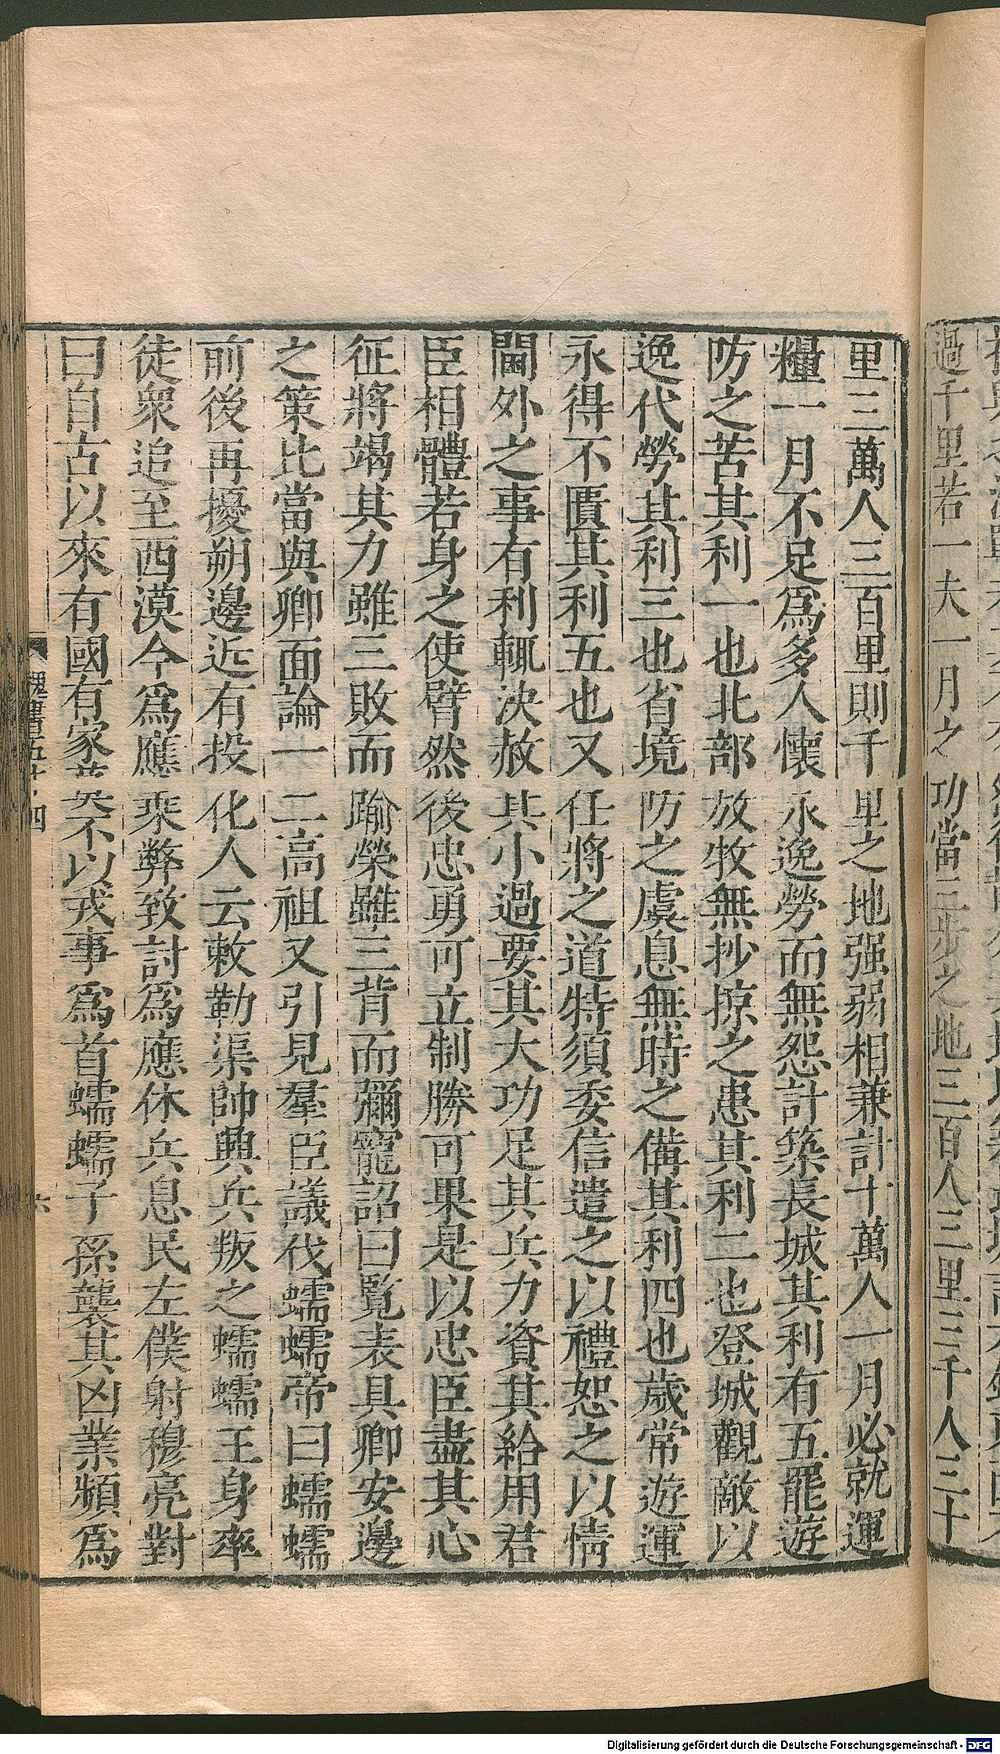 過千里若一夫一月之功當三步之地三百人三里三千人三十
里三萬人三百里則千里之地强弱相兼計十萬人一月必就運
糧一月不足爲多人懷永逸勞而無怨計築長城其利有五罷遊
防之苦其利一也北部放牧無抄掠之患其利二也登城觀敵以
逸代勞其利三也省境防之虞息無時之備其利四也歲常遊運
永得不匱其利五也又任將之道特須委信遣之以禮恕之以情
閫外之事有利輒決赦其小過要其大功足其兵力資其給用君
臣相體若身之使臂然後忠勇可立制勝可果是以忠臣盡其心
征將竭其力雖三敗而踰榮雖三背而彌寵詔曰覽表具卿安邊
之策比當與卿面論一二高祖又引見羣臣議伐蠕蠕帝曰蠕蠕
前後再擾朔邊近有投化人云敕勒渠帥興兵叛之蠕蠕王身率
徒衆追至西漠今爲應乘弊致討爲應休兵息民左僕射穆亮對
曰自古以來有國有家莫不以戎事爲首蠕蠕子孫襲其凶業頻爲
魏書五十四
六
Digitalisierung gefördert durch die Deutsche Forschungsgemeinschaft - DFG